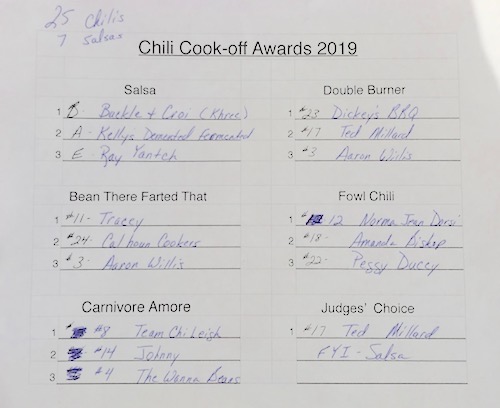 25 Chilis
7 Salsas
Chili Cook-off Awards 2019
Salsa
1 B- Buckle + Croi (Khree)
2 A- Kellys Demented Fermented
3 E- Ray Yantch
Double Burner
1 #23 Dickey's BBQ
2 #17 Ted Millard
3 #3 Aaron Willis
Bean There Farted That
1 #11- Tracey
2 #24- Calhoun Cookers
3 #3- Aaron Willis
Fowl Chili
1 #12 Norma Jean Dorsi
2 #18- Amanda Bishop
3 #22- Peggy Duccy
Carnivore Amore
1 #8 Team Chi Leigh
2 #14 Johnny
3 #4 The Wanna Beans
Judges' Choice
1 #17 Ted Millard
FYI - Salsa